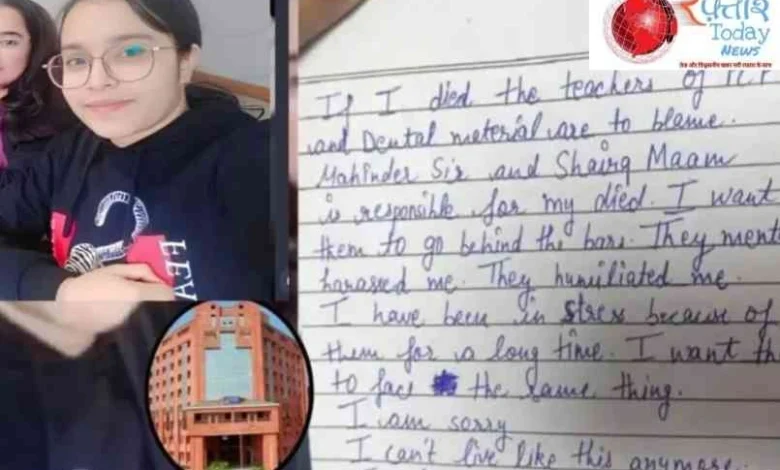 रफ़्तार
Today
NEWS
If I died the teachers of
and Dental material are to blame.
Mahinder Sir and Shairg Maam
is responsible for my died. I want
them to go behind the bars. They
harassed me. They humiliated me.
I have been in stress because of
them for a long time. I want
to face the same thing.
I am sorry
I can't live like this anymore.
LEA